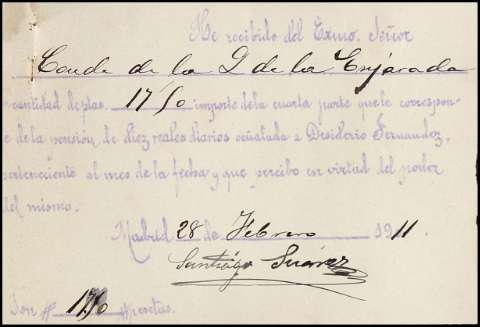 He recibido del Exmo. Señor
Conde de la Q de la Enjarada
cantidad de ptas. 17'50 importe de la cuarta parte que le correspon-
de de la pensión, de diez reales diarios señalada a Desiderio Fernandez,
perteneciente al mes de la fecha y que percibo en virtud del poder
del mismo.
Madrid 28 de Febrero 1911
Santiago Suárez
Son # 17'50 # pesetas.